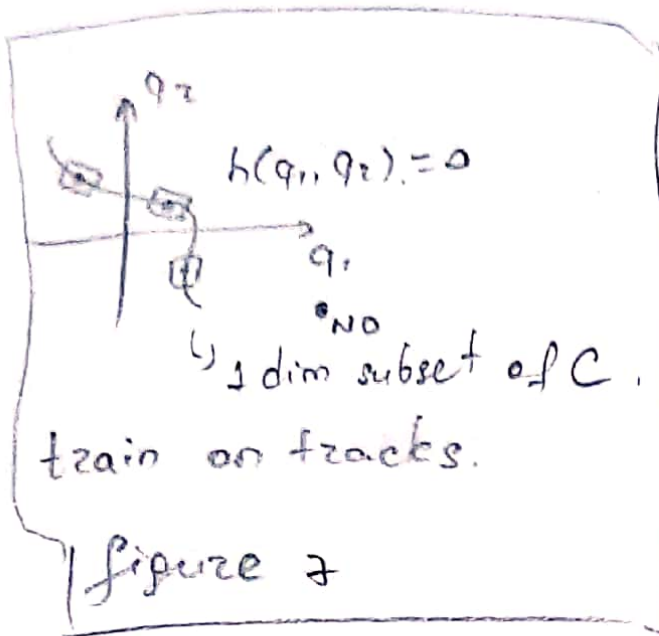 q2
h(q1, q2) = 0
q1
NO
↳ 1 dim subset of C.
train on tracks.
figure 7